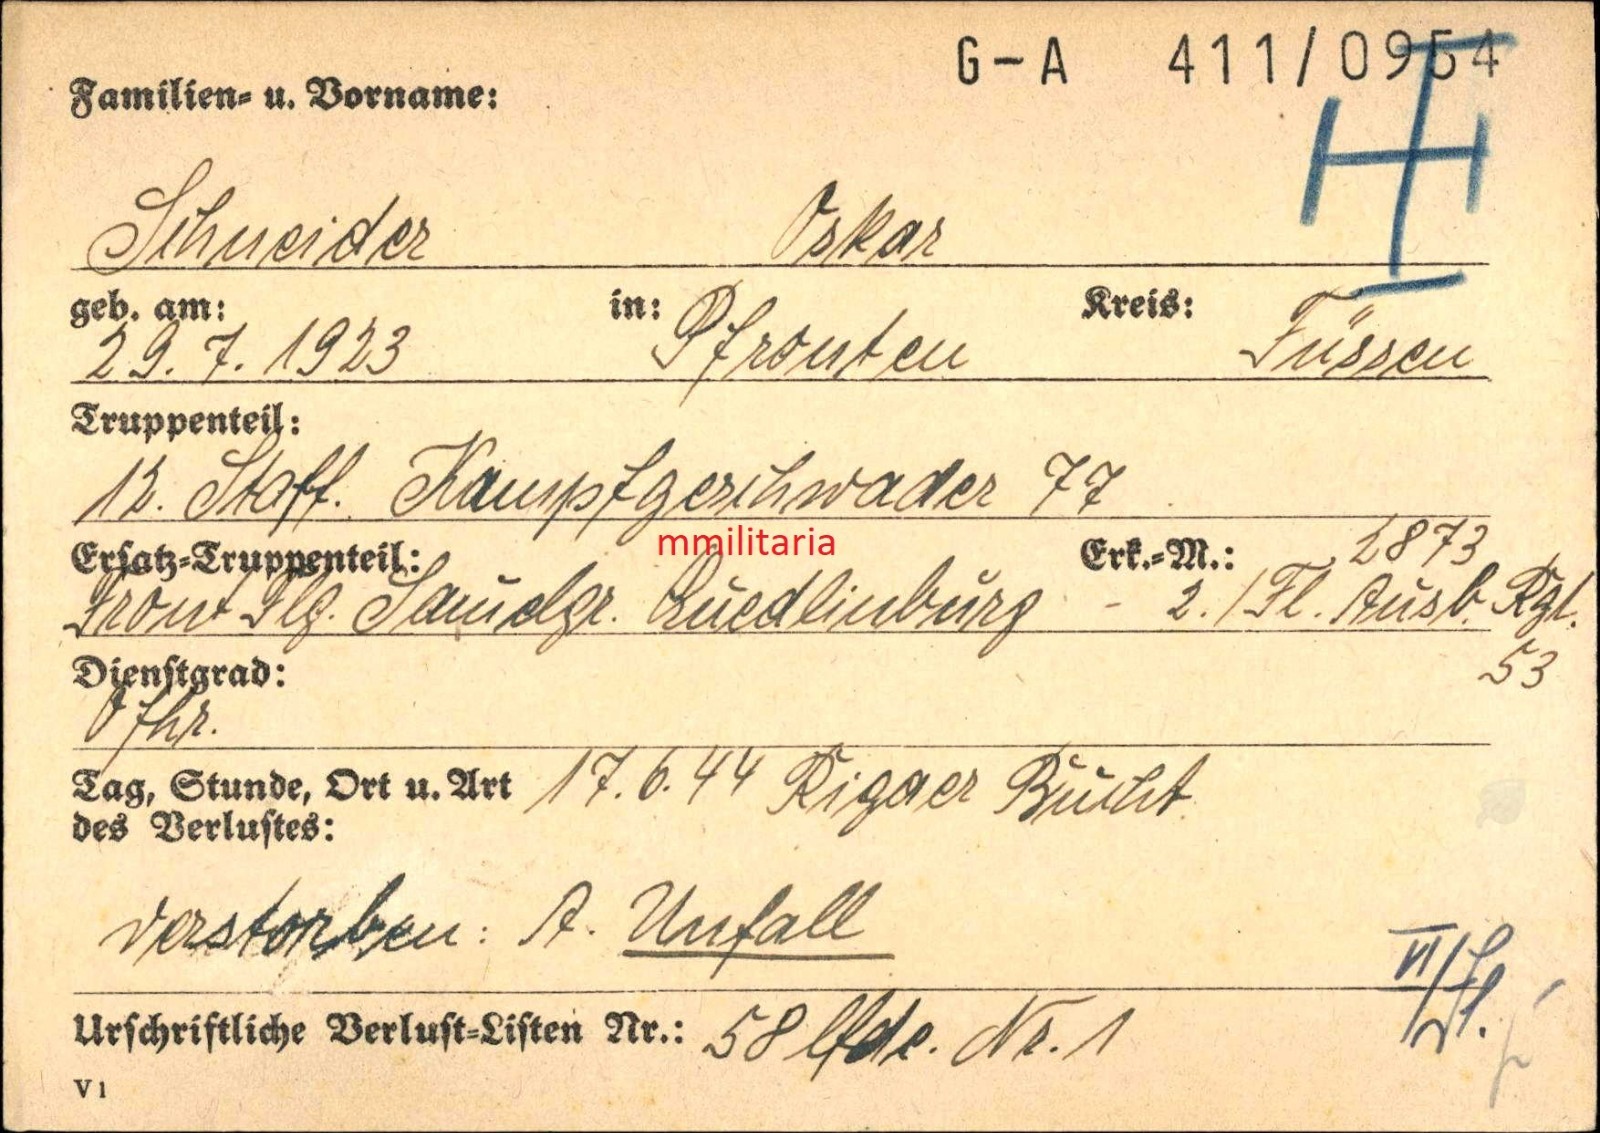 G-A 411/0954
Familien- u. Vorname:
Schneider Oskar
geb. am: in: Kreis:
29. 7. 1923 Pfronten Füssen
Truppenteil:
12. Staff. Kampfgeschwader 77
mmilitaria
Ersatz-Truppenteil: Erk.-M.: 2873
Front Flg. Samelgr. Quedlinburg - 2./Fl. Ausb. Rgt.
53
Dienstgrad:
Ofhr.
Tag, Stunde, Ort u. Art 17.6.44 Rigaer Bucht.
des Verlustes:
verstorben: A. Unfall
VI/Fl.
Urschriftliche Verlust-Listen Nr.: 58 lfde. Nr. 1
V 1